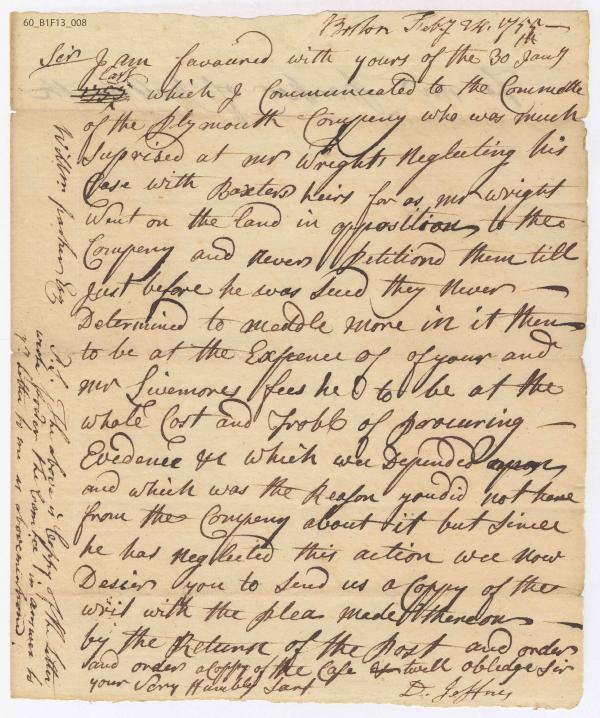 60_B1F13_008
Boston Feby 24. 1755
Sir I am favoured with yours of the 30 Jany
Last
which I Communicated to the Committe
of the Plymouth Compeny who was much
Suprised at mr Wrights Neglecting his
Case with Baxters heirs for as mr Wright
Went on the land in opposition to the
Compeny and never Petitiond them till
Just before he was Sued they Never —
Determined to meddle more in it then
to be at the Expence of of your and
mr Livemores fees he to be at the
whole Cost and Trobl of procuring —
Evidence &c which wee Depended upon
and which was the Reason you did not hear
from the Compeny about it but Since
he has neglected this action wee now
Desier you to Send us a Coppy of the
writ with the pleas made thereon —
by the Return of the Post and order
and order a Coppy of the Case & will obledge Sir
your Very Humble Sart
D. Jeffries
William Parker Esq
P.S. The above is Coppy of the letter
wrote under the Comitee in answer to
yr letter to me as abovementiond.